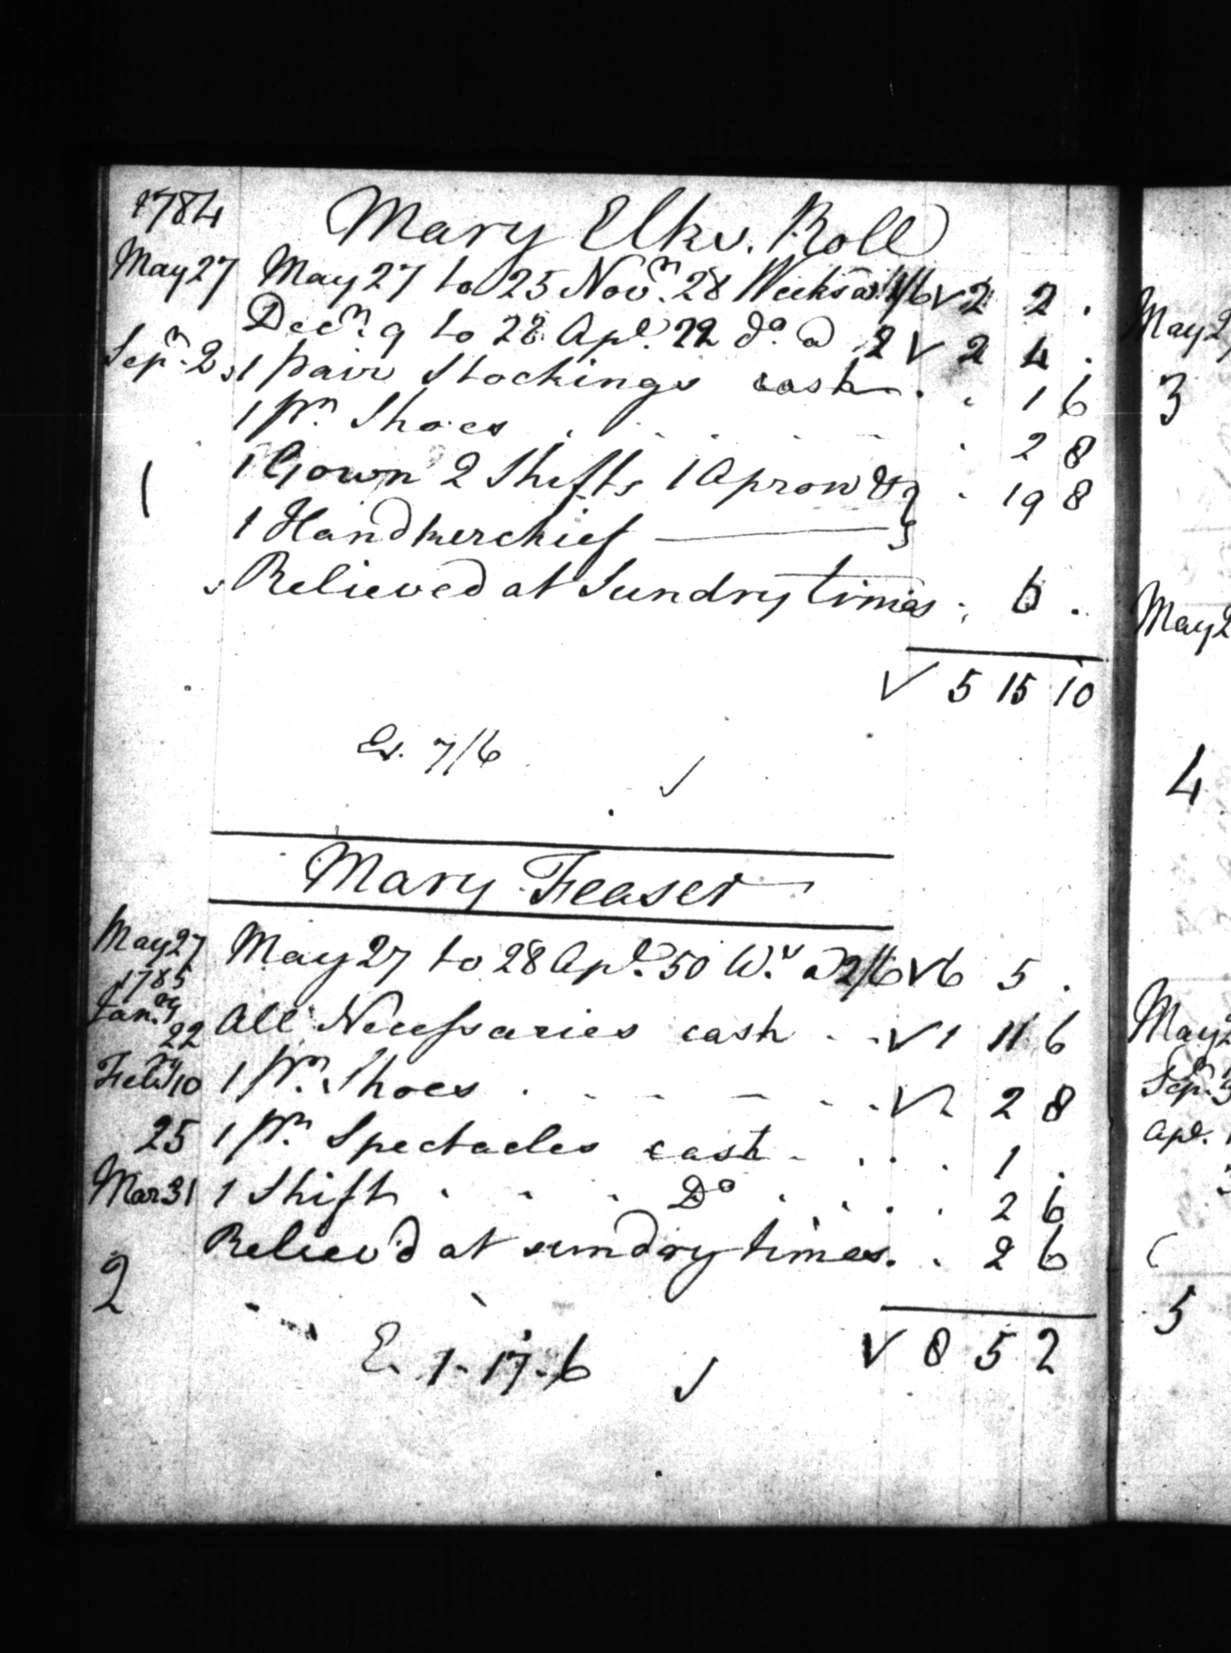 1784 Mary Elkr. Roll
May 27 May 27 to 25 Novm. 28 Weeks a 1/6 √ 2 2 .
Decm. 9 to 28 Apl. 22 do. a 2 √ 2 4 .
Sepm. 2 1 pair Stockings cash . . 1 6
1 pr. Shoes . . . . . 2 8
1 Gown 2 Shifts 1 Apron & } . 19 8
1 1 Handkerchief
Relieved at Sundry times . 6 .
√ 5 15 10
Er. 7/6 √
Mary Feaser
May 27 May 27 to 28 Apl. 50 Ws. a 2/6 √ 6 5 .
1785
Jany. 22 All Necessaries cash . . √ 1 11 6
Feby 10 1 pr. Shoes . . . . . √ 2 8
25 1 pr. Spectacles cash . . . 1 .
Mar 31 1 Shift . . . Do . . . . 2 6
Reliev'd at sundry times . . 2 6
2
√ 8 5 2
E. 1-17-6 √
May 2
3
May 2
4
May 2
Sepr. 3
Apl. 1
5